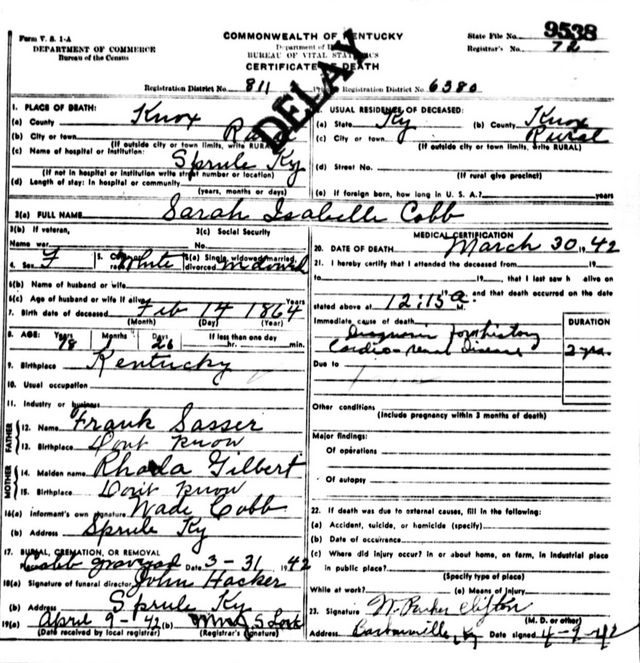 Form V. S. 1-A
DEPARTMENT OF COMMERCE
Bureau of the Census
COMMONWEALTH OF KENTUCKY
BUREAU OF VITAL STATISTICS
CERTIFICATE OF DEATH
DELAY
State File No. 9538
Registrar's No. 72
Registration District No. 811
Registration District No. 6380
1. PLACE OF DEATH:
(a) County Knox
(b) City or town Rural
(If outside city or town limits, write RURAL)
(c) Name of hospital or institution:
Sprule Ky
(If not in hospital or institution write street number or location)
(d) Length of stay: In hospital or community
(years, months or days)
USUAL RESIDENCE OF DECEASED:
(a) State Ky (b) County Knox
(c) City or town Rural
(If outside city or town limits, write RURAL)
(d) Street No.
(If rural give precinct)
(e) If foreign born, how long in U. S. A.? years
3(a) FULL NAME Sarah Isabelle Cobb
3(b) If veteran,
Name war
3(c) Social Security
No.
4. Sex F 5. Color or race White 6(a) Single, widowed, married, divorced Widowed
6(b) Name of husband or wife
6(c) Age of husband or wife if alive Years
7. Birth date of deceased Feb 14 1864
(Month) (Day) (Year)
8. AGE: Years 78 Months 1 Days 26 If less than one day
hr. min.
9. Birthplace Kentucky
10. Usual occupation
11. Industry or business
FATHER
12. Name Frank Sasser
13. Birthplace Dont Know
MOTHER
14. Maiden name Rhoda Gilbert
15. Birthplace Dont Know
16(a) Informant's own signature Wade Cobb
(b) Address Sprule Ky
17. BURIAL, CREMATION, OR REMOVAL
Cobb graveyard Date 3-31 1942
18(a) Signature of funeral director John Hacker
(b) Address Sprule Ky
19(a) April 9-42 (b)
(Date received by local registrar) (Registrar's signature)
MEDICAL CERTIFICATION
20. DATE OF DEATH March 30, 1942
21. I hereby certify that I attended the deceased from 19
to 19 , that I last saw h alive on
19 , and that death occurred on the date
stated above at 12:15 a M.
Immediate cause of death
Diagnosis from history
Cardio-renal disease
DURATION
2 yrs.
Due to
Other conditions
(Include pregnancy within 3 months of death)
Major findings:
Of operations
Of autopsy
22. If death was due to external causes, fill in the following:
(a) Accident, suicide, or homicide (specify)
(b) Date of occurrence
(c) Where did injury occur? in or about home, on farm, in industrial place
in public place?
(Specify type of place)
While at work? (e) Means of Injury
23. Signature W. Parker Clifton
(M. D. or other)
Address Barbourville, Ky Date signed 4-9-42